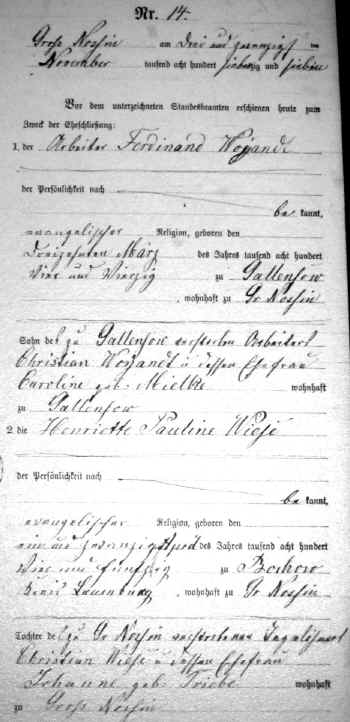 Nr. 14.
Gross Nossin am Drei und zwanzigsten
November tausend acht hundert siebenzig und sieben
Vor dem unterzeichneten Standesbeamten erschienen heute zum
Zweck der Eheschließung:
1. der Arbeiter Ferdinand Woyandt
der Persönlichkeit nach
be kannt,
evangelischer Religion, geboren den
Dreizehnten März des Jahres tausend acht hundert
Vier und Vierzig zu Gallensow
, wohnhaft zu Gr Nossin
Sohn des zu Gallensow verstorbenen Arbeiters
Christian Woyandt u dessen Ehefrau
Caroline geb. Mielke wohnhaft
zu Gallensow
2. die Henriette Pauline Wiese
der Persönlichkeit nach
be kannt,
evangelischer Religion, geboren den
ein und zwanzigsten April des Jahres tausend acht hundert
Vier und fünfzig zu Bochow
Kreis Lauenburg , wohnhaft zu Gr Nossin
Tochter des zu Gr Nossin verstorbenen Tagelöhners
Christian Wiese u dessen Ehefrau
Johanne geb. Friebe wohnhaft
zu Gross Nossin